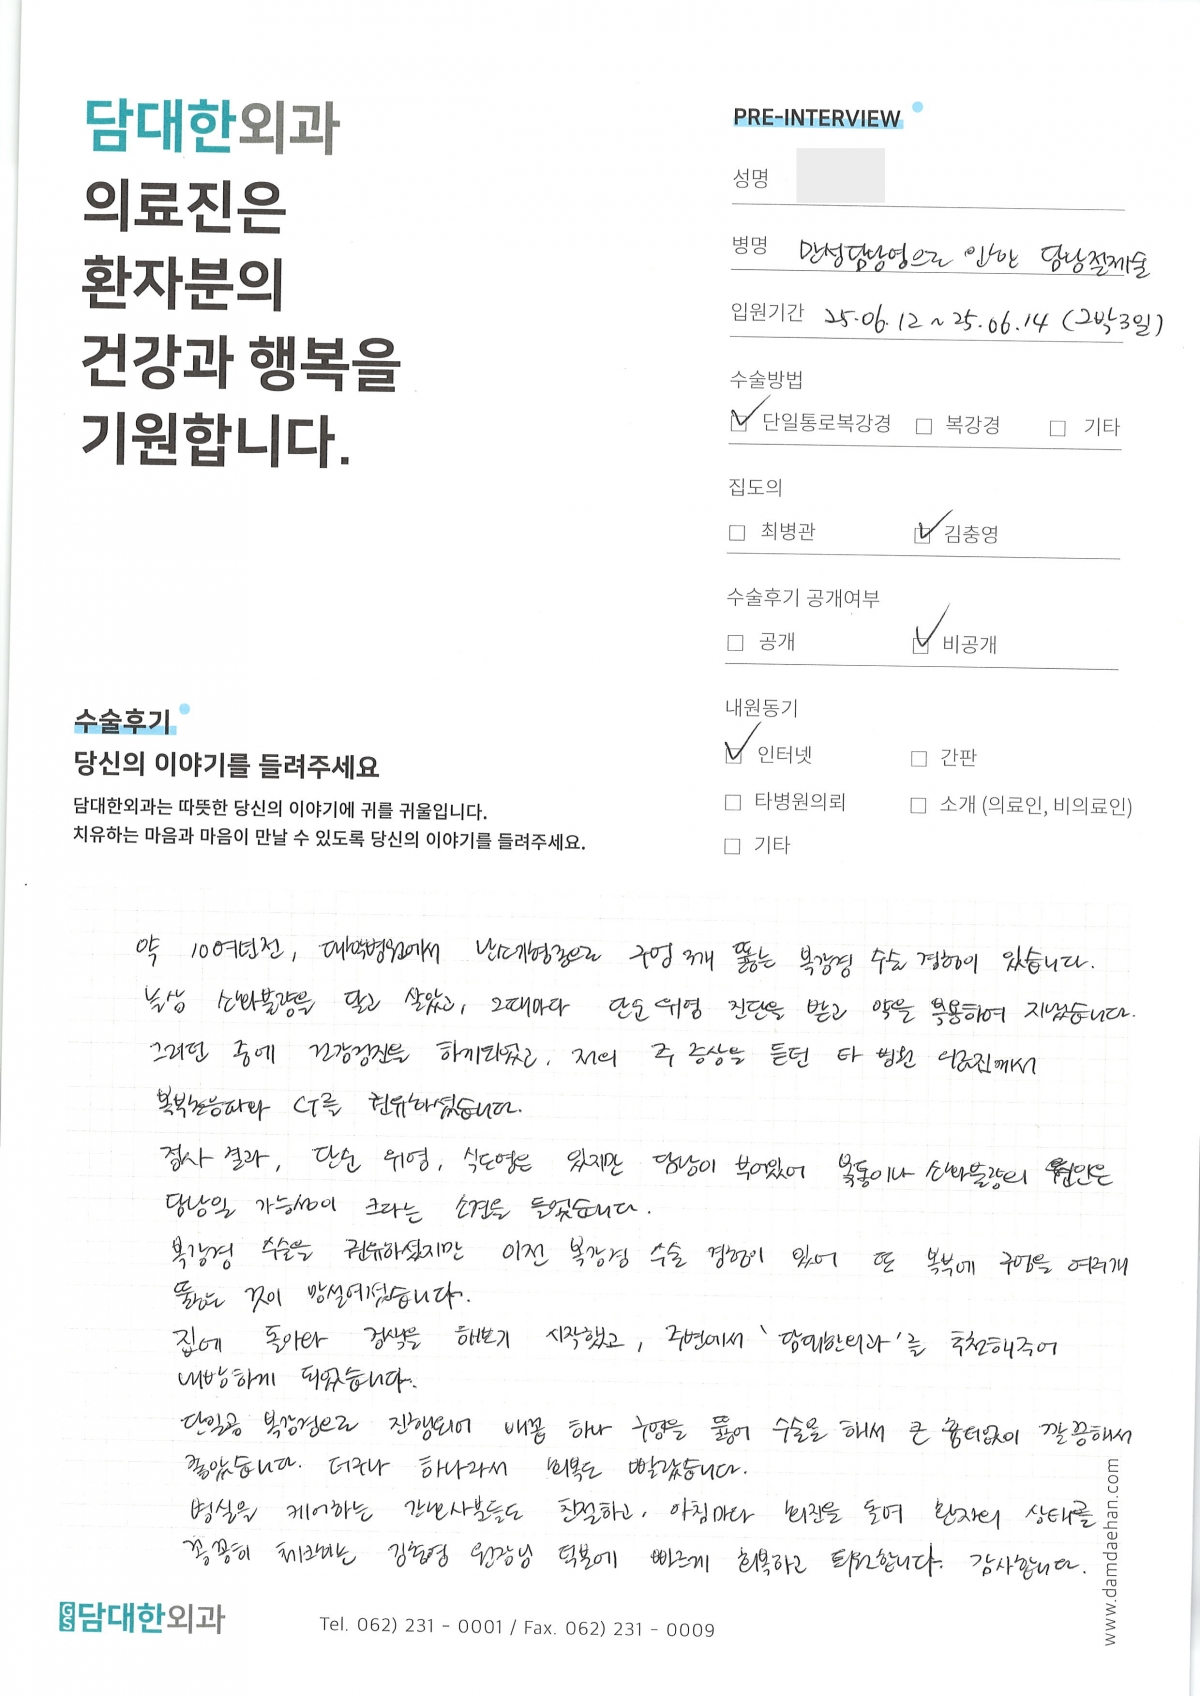 담대한외과
의료진은
환자분의
건강과 행복을
기원합니다.
PRE-INTERVIEW
성명
병명 만성담낭염으로 인한 담낭절제술
입원기간 25.06.12 ~ 25.06.14 (2박3일)
수술방법
단일통로복강경 복강경 기타
집도의
최병관 김충영
수술후기 공개여부
공개 비공개
내원동기
인터넷 간판
타병원의뢰 소개 (의료인, 비의료인)
기타
수술후기
당신의 이야기를 들려주세요
담대한외과는 따뜻한 당신의 이야기에 귀를 귀울입니다.
치유하는 마음과 마음이 만날 수 있도록 당신의 이야기를 들려주세요.
약 10여년전, 대학병원에서 난소개형종으로 구멍 3개 뚫는 복강경 수술 경험이 있습니다.
늘상 소화불량을 달고 살았고, 그때마다 단순 위염 진단을 받고 약을 복용하여 지냈습니다.
그러던 중에 건강검진을 하게되었고, 저의 주 증상을 듣던 타 병원 의료진께서
복부초음파와 CT를 권유하셨습니다.
검사 결과, 단순 위염, 식도염은 있지만 담낭이 부어있어 복통이나 소화불량의 원인은
담낭일 가능성이 크다는 소견을 들었습니다.
복강경 수술을 권유하셨지만 이전 복강경 수술 경험이 있어 또 복부에 구멍을 여러개
뚫는 것이 망설여졌습니다.
집에 돌아와 검색을 해보기 시작했고, 주변에서 '담대한외과'를 추천해주어
내방하게 되었습니다.
단일공 복강경으로 진행되어 배꼽 하나 구멍을 뚫어 수술을 해서 큰 흉터없이 깔끔해서
좋았습니다. 더구나 하나라서 회복도 빨랐습니다.
병실을 케어하는 간호사분들도 친절하고, 아침마다 회진을 돌며 환자의 상태를
꼼꼼히 체크하는 김충영 원장님 덕분에 빠르게 회복하고 퇴원합니다. 감사합니다.
www.damdaehan.com
GS 담대한외과
Tel. 062) 231 - 0001 / Fax. 062) 231 - 0009